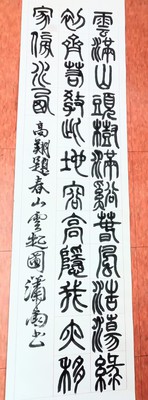 雲滿山頭樹滿谿春風浩蕩綠
初齊若教此地容高隱我亦移
家傍水西 高翔題春山雲起圖